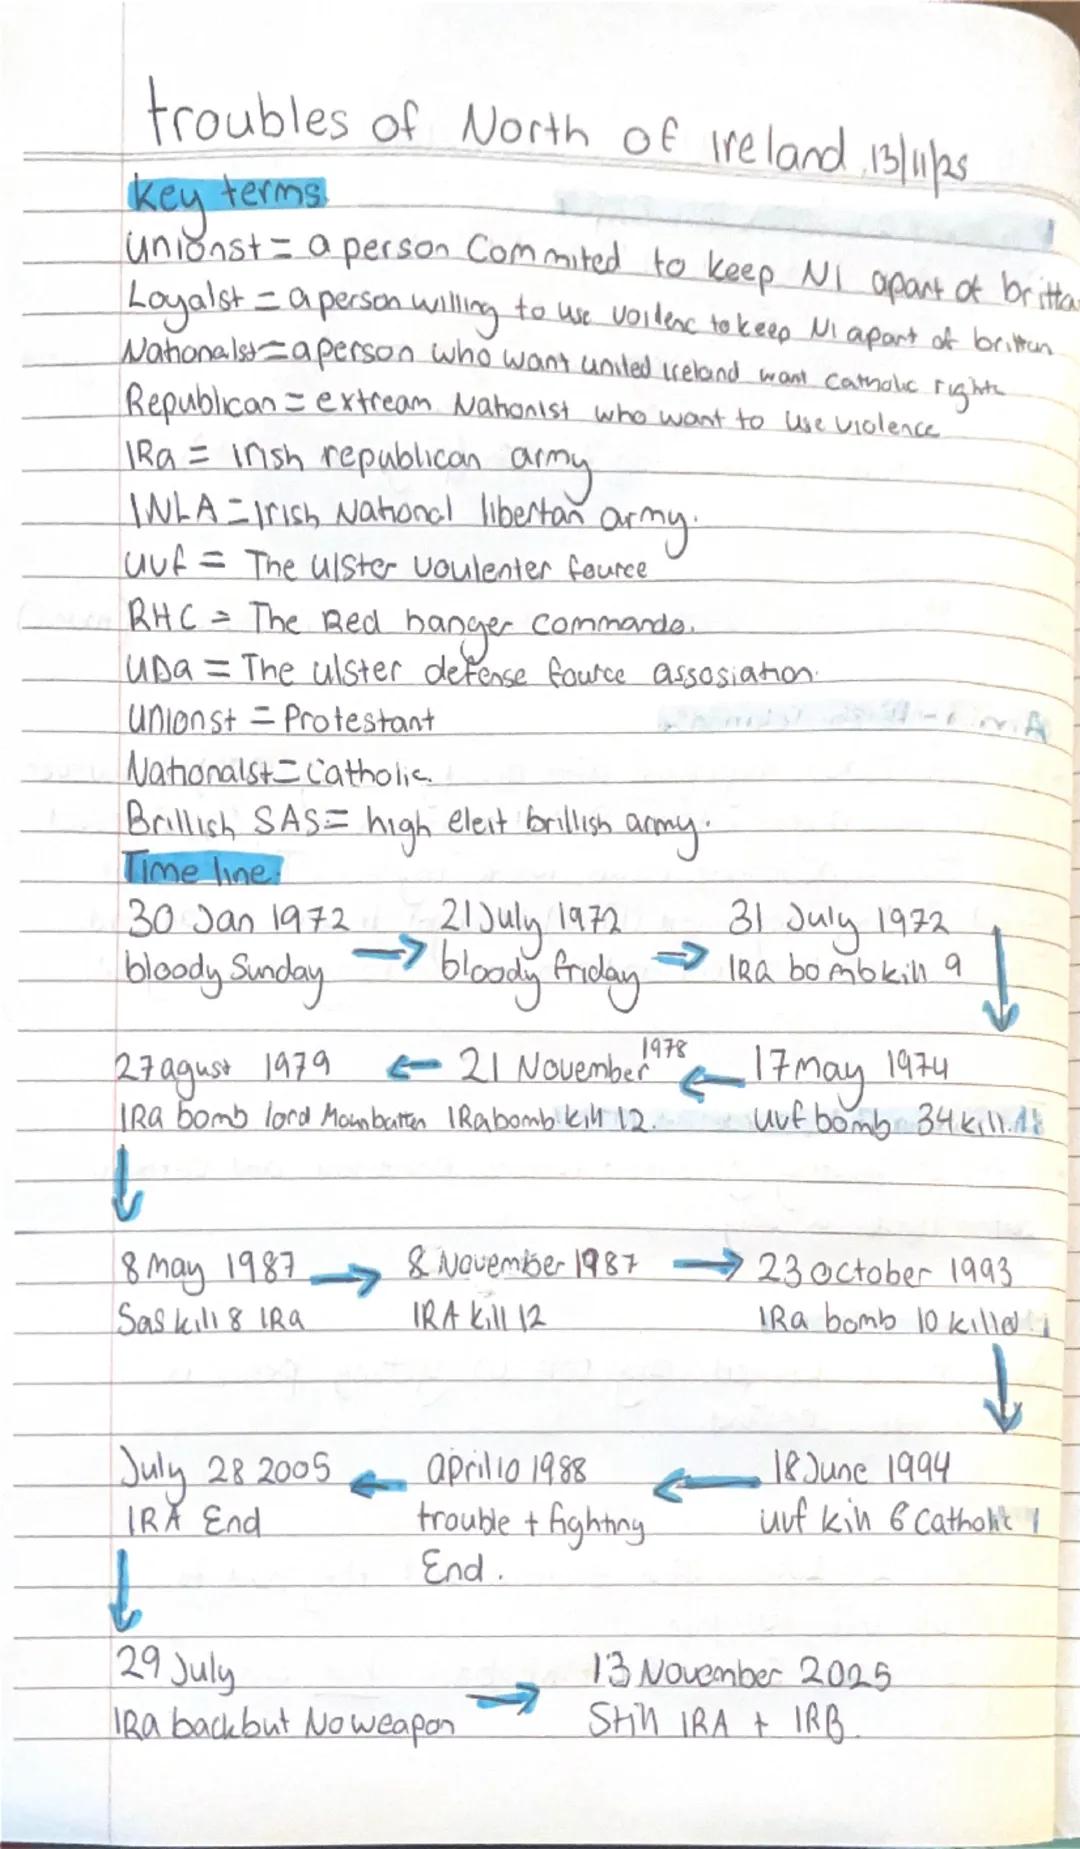 troubles of North of ireland 13/11/25
key terms.
unionst = a person Commited to keep NI apart of britta
Loyalst = a person willing to use voilenc to keep NI apart of brittan
Nationalst = a person who want united ireland want catholic right
Republican = extream Nationist who want to use violence
IRa = irish republican army
INLA = Irish National libertan army.
uuf = The ulster voulenter fource
RHC = The Red hanger commando.
UDa = The ulster defense fource assosiation.
unionst = Protestant
Nationalst = Catholic.
Brillish SAS = high eleit brillish army.
Time line.
30 Jan 1972 21 July 1972 31 July 1972
bloody Sunday → bloody friday → IRa bomb kill 9 ↓
27 agust 1979 ← 21 November 1978 ← 17 may 1974
IRa bomb lord Mounbatten IRa bomb kill 12. uvf bomb 34 kill.
↓
8 may 1987 → 8 November 1987 → 23 october 1993
Sas kill 8 IRa IRA kill 12 IRa bomb 10 killed
↓
July 28 2005 ← april 10 1988 ← 18 June 1994
IRA End trouble + fighting uvf kill 6 Catholic
End.
↓
29 July → 13 November 2025
IRa back but No weapon Still IRA + IRB.